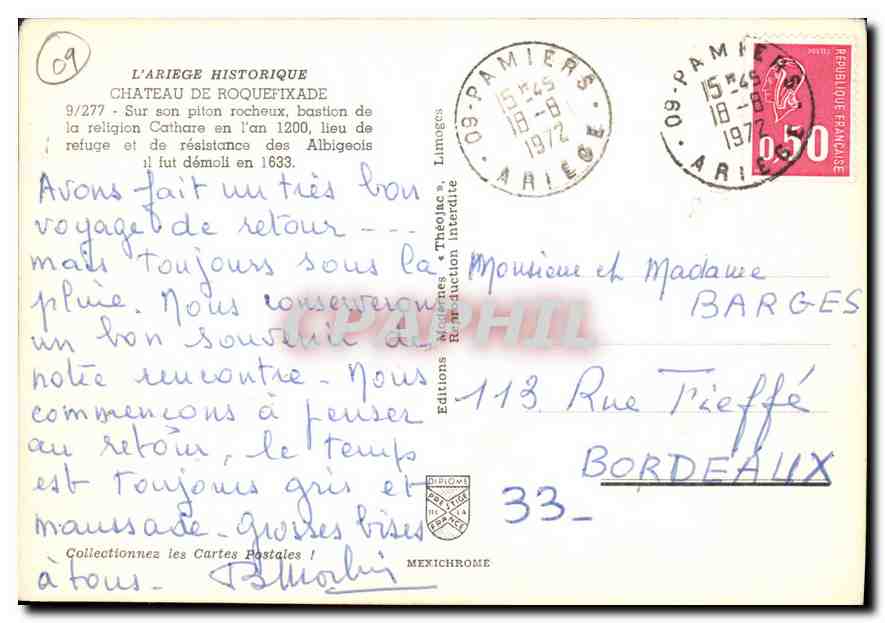 09
L'ARIEGE HISTORIQUE
CHATEAU DE ROQUEFIXADE
9/277 - Sur son piton rocheux, bastion de
la religion Cathare en l'an 1200, lieu de
refuge et de résistance des Albigeois
il fut démoli en 1633.
Avons fait un très bon
voyage de retour ---
mais toujours sous la
pluie. Nous conserverons
un bon souvenir de
notre rencontre - Nous
commençons à penser
au retour, le temps
est toujours gris et
maussade - Grosses bises
Collectionnez les Cartes Postales !
à tous.
Editions Modernes « Théojac », Limoges
Reproduction interdite
DIPLOME
PRESTIGE
DE LA
FRANCE
MEXICHROME
09 - PAMIERS
15 H 45
18 - 8
1972
ARIEGE
09 - PAMIERS
15 H 45
18 - 8
1972
ARIEGE
REPUBLIQUE FRANÇAISE
0,50
Monsieur et Madame
BARGES
113 Rue Tieffé
BORDEAUX
33 -
CPAPHIL